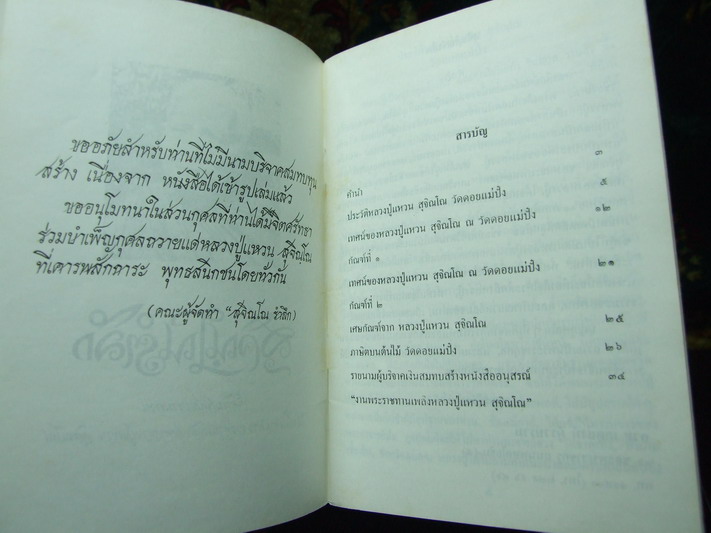 ขออภัยสำหรับท่านที่ไม่มีนามบริจาคสมทบทุน
สร้าง เนื่องจาก หนังสือได้เข้ารูปเล่มแล้ว
ขออนุโมทนาในส่วนกุศลที่ท่านได้มีจิตศรัทธา
ร่วมบำเพ็ญกุศลถวายแด่หลวงปู่แหวน สุจิณโณ
ที่เคารพสักการะ พุทธสนิกชนโดยทั่วกัน
(คณะผู้จัดทำ "สุจิณโณ รำลึก)
สารบัญ
คำนำ ๓
ประวัติหลวงปู่แหวน สุจิณโณ วัดดอยแม่ปั๋ง ๕
เทศน์ของหลวงปู่แหวน สุจิณโณ ณ วัดดอยแม่ปั๋ง ๑๒
กัณฑ์ที่ ๑
เทศน์ของหลวงปู่แหวน สุจิณโณ ณ วัดดอยแม่ปั๋ง ๒๑
กัณฑ์ที่ ๒
เศษกัณฑ์จาก หลวงปู่แหวน สุจิณโณ ๒๕
ภาษิตบนต้นไม้ วัดดอยแม่ปั๋ง ๒๖
รายนามผู้บริจาคเงินสมทบสร้างหนังสืออนุสรณ์ ๓๔
"งานพระราชทานเพลิงหลวงปู่แหวน สุจิณโณ"